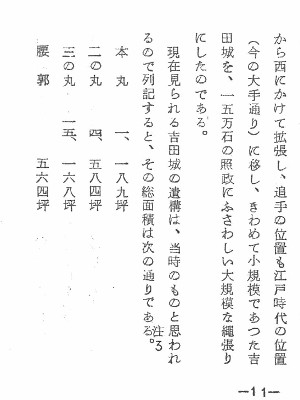 から西にかけて拡張し、追手の位置も江戸時代の位置
(今の大手通り)に移し、きわめて小規模であつた吉
田城を、一五万石の照政にふさわしい大規模な縄張り
にしたのである。
現在見られる吉田城の遺構は、当時のものと思われ
るので列記すると、その総面積は次の通りである。注3
本丸 一、一八九坪
二の丸 四、五八四坪
三の丸 一五、一六八坪
腰郭 五六四坪
—11—